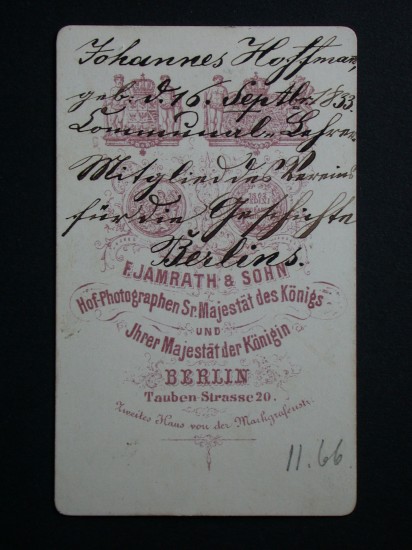 Johannes Hoffmann,
geb. d. 16. Septbr. 1833.
Communal-Lehrer
Mitglied des Vereins
für die Geschichte
Berlins.
F. JAMRATH & SOHN
Hof-Photographen Sr. Majestät des Königs
UND
Jhrer Majestät der Königin
BERLIN
Tauben-Strasse 20.
Zweites Haus von der Markgrafenstr.
11.66.